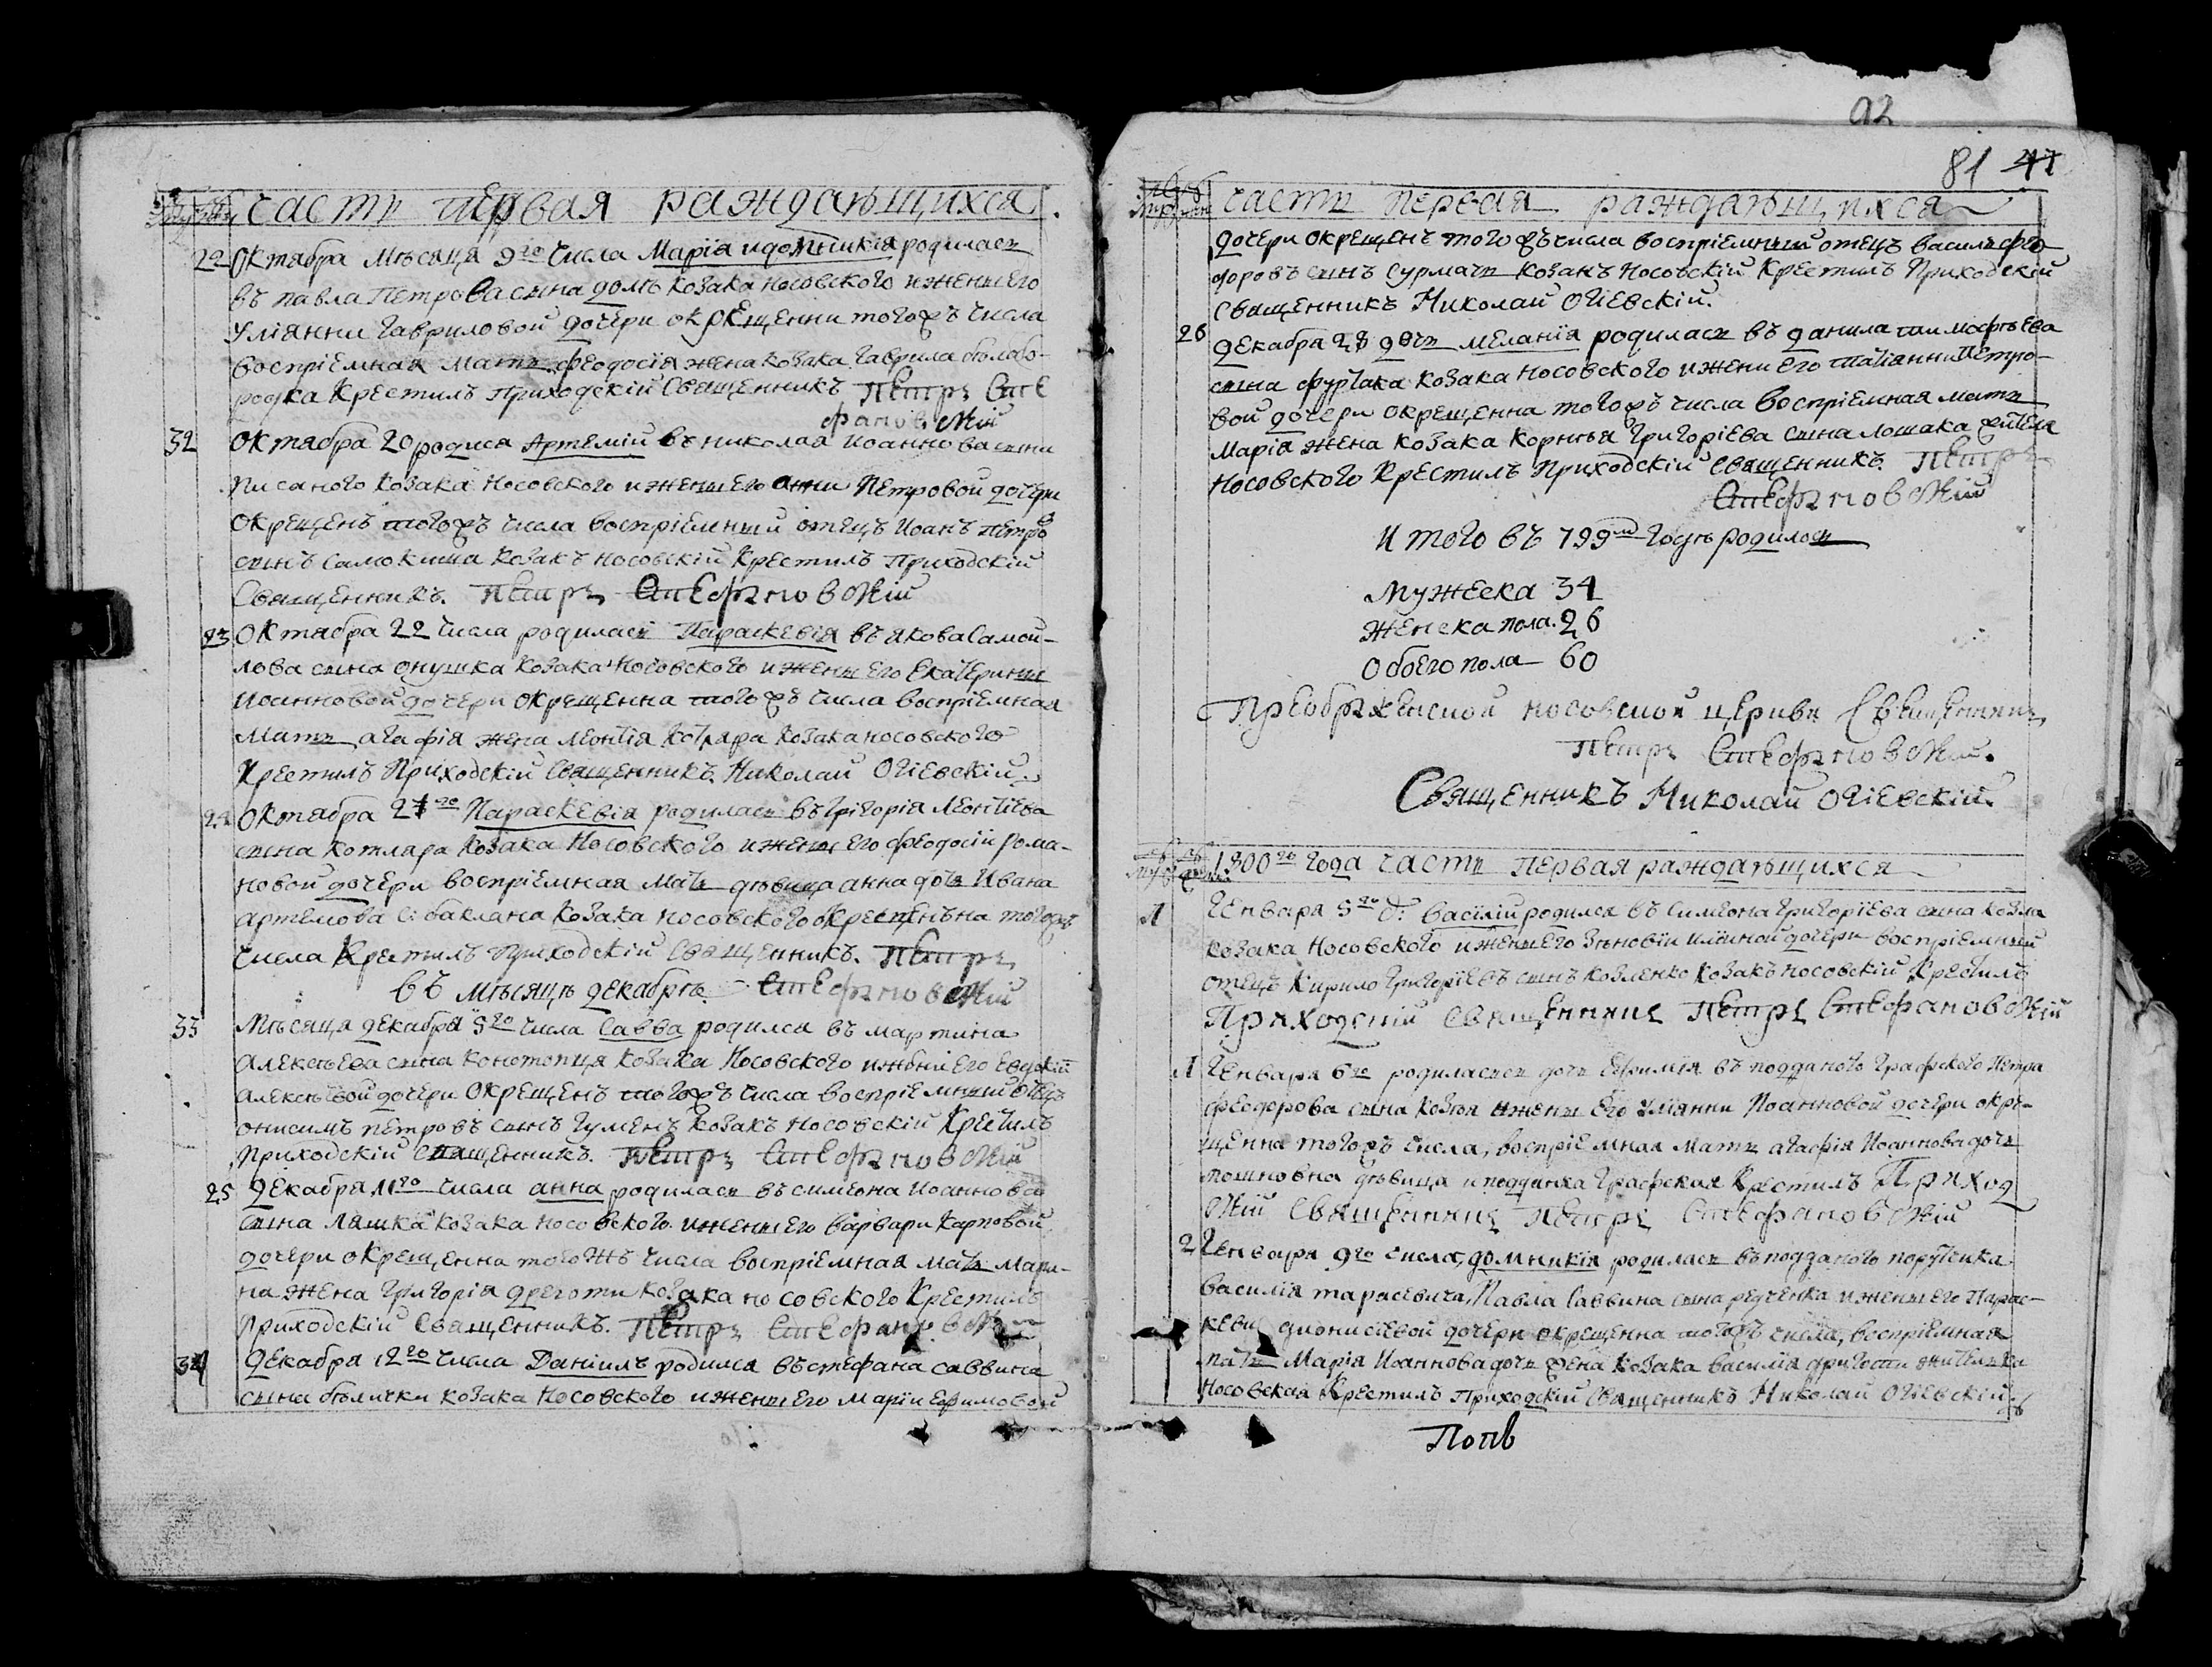 часть первая раждающихся
22 Октября мѣсяца 9го числа Марія и домникія родилась
въ павла Петрова сына домъ козака носовского и жени его
Уліянни гавриловой дочери окрещенни тогожъ числа
воспріемная мать феодосія жена козака гаврила бѣлобо-
родка Крестилъ Приходскій Священникъ Петръ Сте
фановскій
32 Октября 20 родися Артемій въ николая иоаннова сына
писаного козака носовского и жени его анни Петровой дочери
окрещенъ тогожъ числа воспріемный отецъ Иоанъ петро
сынъ самокиша козакъ носовскій Крестилъ Приходскій
Священникъ. Петръ Стефановскій
23 Октября 22 числа родилась Параскевія въ якова Самой-
лова сына онушка козака носовского и жени его Екатерини
Иоанновой дочери окрещенна тогожъ числа воспріемная
мать агафія жена леонтія котляра козака носовского
Крестилъ Приходскій Священникъ Николай Огіевскій.
24 Октября 27го Параскевія родилась въ григорія леонтіева
сына котляра козака Носовского и жени его феодосіи рома-
новой дочери воспріемная мать дѣвица анна дочь Ивана
артемова с: баклана козака носовского окрещенна тогожъ
числа Крестилъ Приходскій Священникъ. Петръ
въ мѣсяцѣ декабрѣ Стефановскій
33 Мѣсяца декабря 5го числа Савва родился въ мартина
алексѣева сына конотопця козака Носовского и жени его Евдокіи
алексѣевой дочери окрещенъ тогожъ числа воспріемный отецъ
онисимъ петровъ сынъ гуменъ козакъ носовскій Крестилъ
Приходскій Священникъ. Петръ Стефановскій
25 Декабря 11го числа анна родилась въ симеона Иоаннова
сына ляшка козака носовского и жени его варвари карповой
дочери окрещенна тогожъ числа воспріемная мать мари-
на жена григорія дреготи козака носовского Крестилъ
Приходскій Священникъ. Петръ Стефановскій
34 Декабря 12го числа Даніилъ родился въ стефана саввина
сына бѣлички козака Носовского и жени его маріи Ефимовой
92
81 47
часть первая раждающихся
дочери окрещенъ тогожъ числа воспріемный отецъ василь фео
доровъ сынъ сурмачь козакъ носовскій Крестилъ Приходскій
Священникъ Николай Огіевскій.
26 Декабря 28 дочь меланія родилась въ данила тимофѣева
сына фурсака козака носовского и жени его татіанни Петро-
вой дочери окрещенна тогожъ числа воспріемная мать
Марія жена козака корнѣя григоріева сына лошака жителя
носовского Крестилъ Приходскій Священникъ. Петръ
Стефановскій
Итого въ 799мъ годѣ родилось
Мужеска 34
Женска пола 26
Обоего пола 60
Преображенской носовской церкви Священникъ
Петръ Стефановскій.
Священникъ Николай Огіевскій.
1800го года часть первая раждающихся
1 Генваря 5го д: василій родился въ симеона григоріева сына козла
козака носовского и жени его зѣновіи иліиной дочери воспріемный
отецъ Кирило григоріевъ сынъ козленко козакъ носовскій Крестилъ
Приходскій Священникъ Петръ Стефановскій
1 Генваря 6го родилась дочь Ефимія въ подданого графского Петра
феодорова сына и жени его Уліянни Иоанновой дочери окре-
щенна тогожъ числа, воспріемная мать агафія Иоаннова дочь
дѣвица и подданка графская Крестилъ Приход
скій Священникъ Петръ Стефановскій
2 Генваря 9го числа, домникія родилась въ подданого порутчика
василія тарасевича, Павла Саввина сына редченка и жени его Парас-
кеви дионисіевой дочери окрещенна тогожъ числа, воспріемная
мать Марія Иоаннова дочь жена козака василія дриготи жителька
носовская Крестилъ Приходскій Священникъ Николай Огіевскій
Попъ